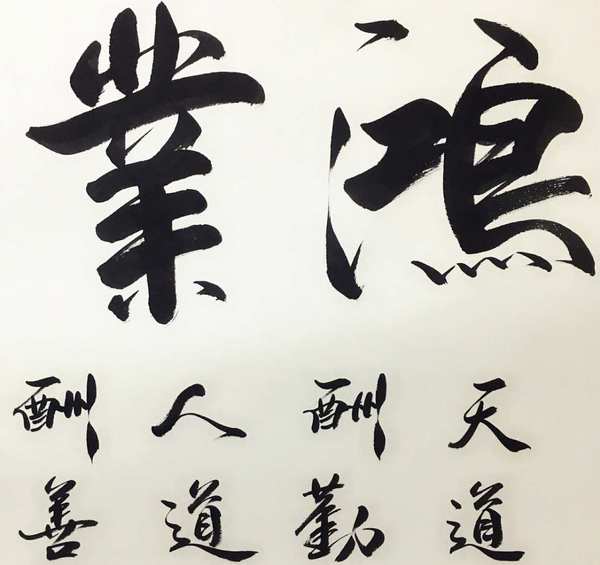 鴻業
天道
酬勤
人道
酬善